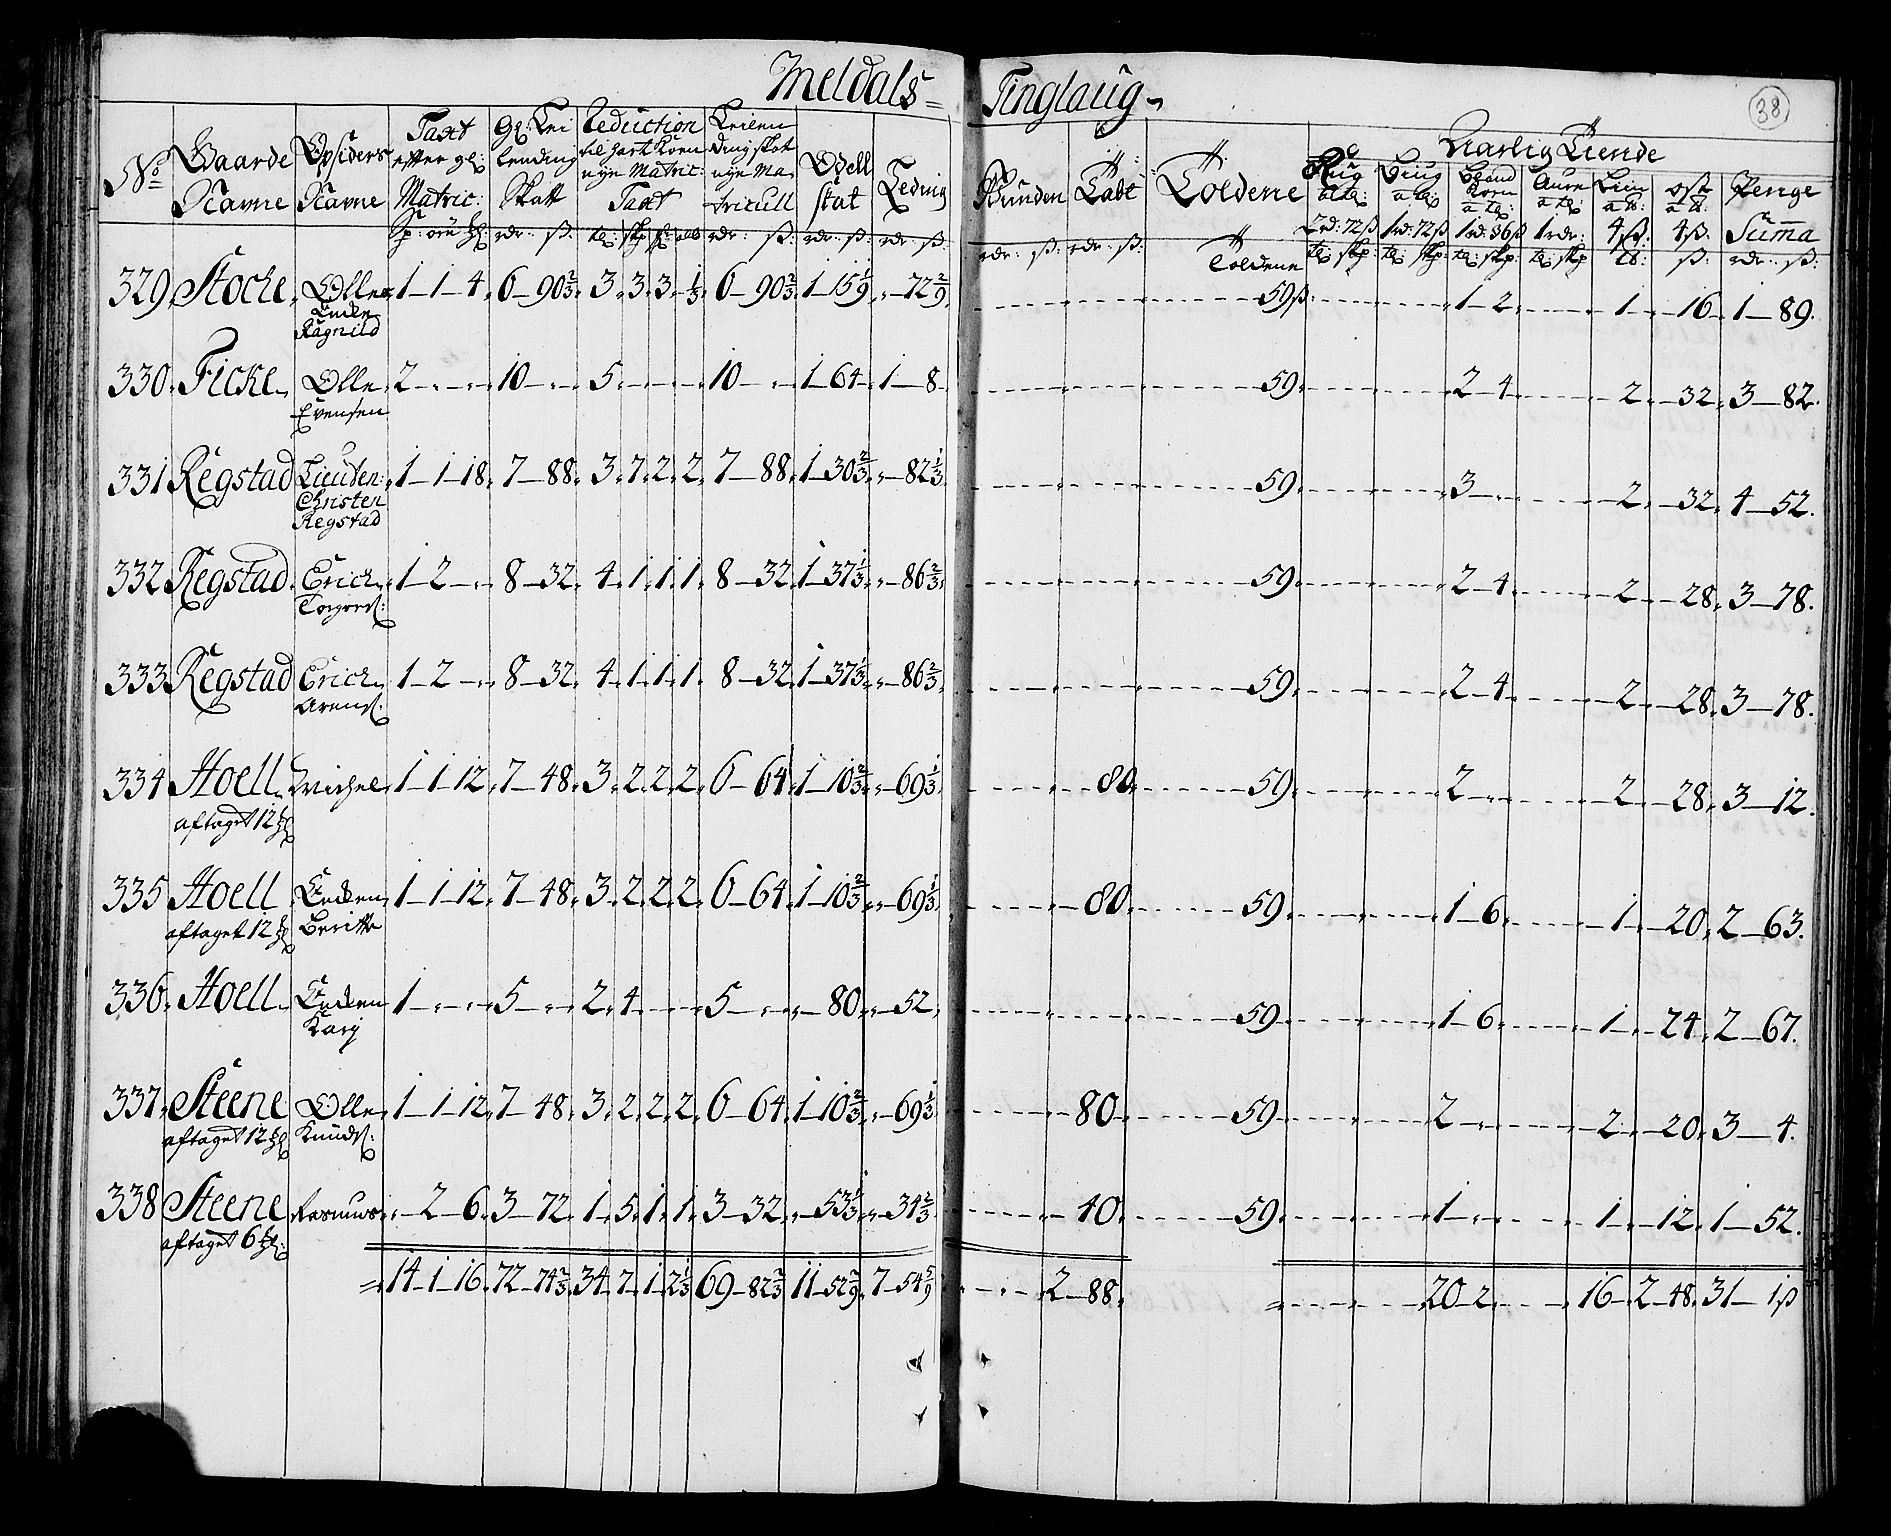 Meldals= Tinglaug
38
No Gaarde Opsiders Taxt Gl: Lei Reduction Leilen Odell Ledning
Navne Navne efter gl: lending til Hart Korn dings skat skat
Matric: Skatt nye Matric: nye Ma
Taxt tricull
rdr: ß: rdr: ß: rdr: ß: rdr: ß:
Aarlig Tiende
Rug Biug Bland Korn Aure Liin ost Penge
2rd: 72ß 1rd: 72ß 1rd: 36ß 1rdr: 4ß: 4ß: Suma
rdr: ß: rdr: ß: rdr: ß:
329 Stocke Olle 1 1 4 6 90 2/3 3 3 3 1/3 6 90 2/3 1 15 1/9 72 2/9 59ß 1 2 1 16 1 89.
Ragnild
330 Ficke Olle 2 10 5 10 1 64 1 8 59 2 4 2 32 3 82.
Evensen
331 Regstad Lieuten: 1 1 18 7 88 3 7 2 2 7 88 1 30 2/3 82 1/3 59 3 2 32 4 52.
Christen
Regstad
332 Regstad Erich 1 2 8 32 4 1 1 1 8 32 1 37 1/3 86 2/3 59 2 4 2 28 3 78.
333 Regstad Erich 1 2 8 32 4 1 1 1 8 32 1 37 1/3 86 2/3 59 2 4 2 28 3 78.
Arends:
334 Hoell Michel 1 1 12 7 48 3 2 2 2 6 64 1 10 2/3 69 1/3 80 59 2 2 28 3 12.
aftaget 12
335 Hoell Enken 1 1 12 7 48 3 2 2 2 6 64 1 10 2/3 69 1/3 80 59 1 6 1 20 2 63.
aftaget 12 Beritte
336 Hoell Enken 1 5 2 4 5 80 52 59 1 6 1 24 2 67.
Karj
337 Steene Olle 1 1 12 7 48 3 2 2 2 6 64 1 10 2/3 69 1/3 80 59 2 2 20 3 4.
aftaget 12 Knuds:
338 Steene Rasmus 2 6 3 72 1 5 1 1 3 32 53 1/3 34 2/3 40 59 1 1 12 1 52.
aftaget 6
= 14 1 16 72 74 2/3 34 7 1 2 1/3 69 82 2/3 11 52 2/9 7 54 5/9 2 88 = 20 2 16 2 48 31 1ß